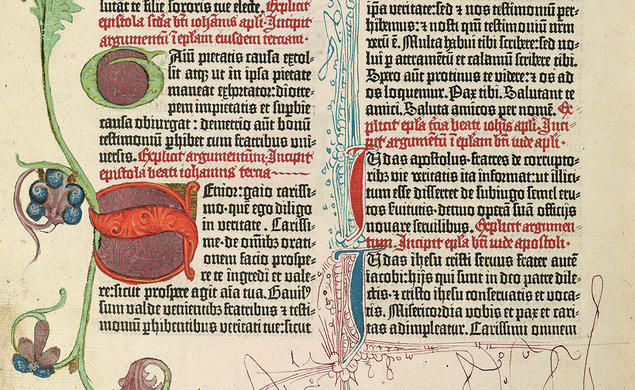 lutãt te filie sororis tue electe. Explicit
epistola scda bti iohãnis apli. Incipit
argumentũ ĩ eplam eiusdem terciam.
Gaiũ pietatis causa extol-
lit atq; ut in ipsa pietate
maneat exhortator: diotre-
pem impietatis et supbie
causa obiurgat: demetrio aũt bonũ
testimoniũ phibet cum fratribus uni-
uersis. Explicit argumentum. Incipit
epistola beati iohannis tercia
Senior: gaio carissi-
mo: quẽ ego diligo
in veritate. Carissi-
me: de omĩbus orati-
onem facio prospe-
re te ĩgredi et vale-
re: sicut prospere agit aĩa tua. Gauisus
sum valde venientibus fratribus ⁊ testi-
moniũ phibentibus veritati tue: sicut
ipa veritate: sed ⁊ nos testimoniũ per-
hibemus: ⁊ nosti qm̃ testimoniũ nrm
verũ ẽ. Multa habui tibi scribere: sed no-
lui p atramentũ et calamũ scribere tibi.
Spero aũt protinus te videre: ⁊ os ad
os loquemur. Pax tibi. Salutant te
amici. Saluta amicos per nomẽ. Ex-
plicit epla tercia beati iohãis apli. Inci-
pit argumentũ ĩ eplam bti iude apli.
Iudas apostolus fratres de corrupto-
ribus vie veritatis ita informat: ut illici-
tum esse disseret de subiugo semel erutos
seruitutis: denuo operã suã officijs
nouare seruilibus. Explicit argumen-
tum. Incipit epla bti iude apostoli.
Iudas ihesu cristi seruus frater autẽ
iacobi: hijs qui sunt in deo patre dile-
ctis: ⁊ cristo ihesu conseruatis et voca-
tis. Misericordia vobis et pax et cari-
tas adimpleatur. Carissimi omnem